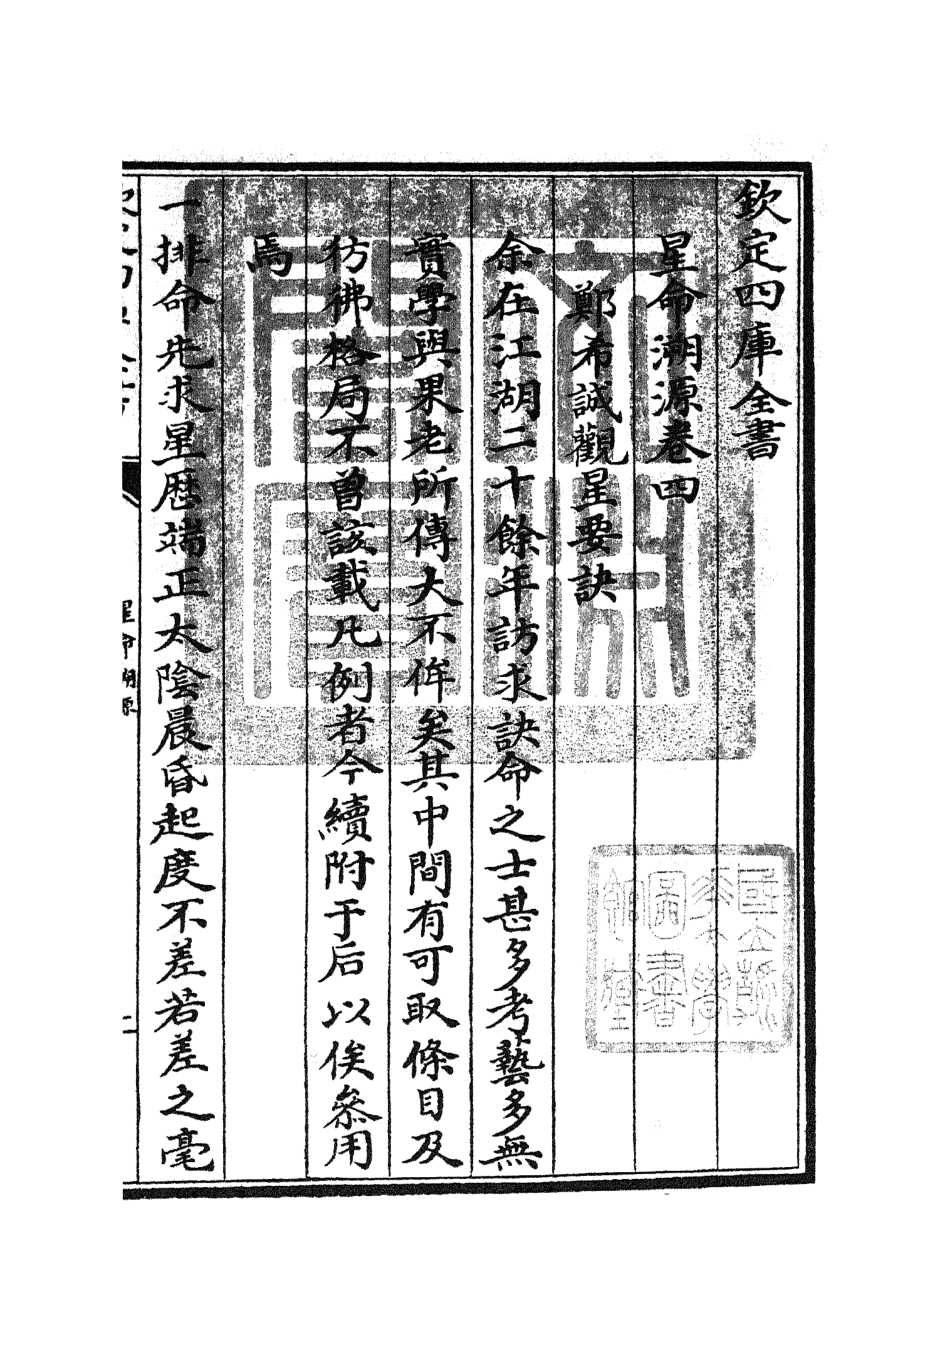 欽定四庫全書
星命溯源卷四
鄭希誠觀星要訣
余在江湖二十餘年訪求訣命之士甚多考藝多無
實學與果老所傳大不侔矣其中間有可取條目及
彷彿格局不曾該載凡例者今續附于后以俟叅用
焉
一排命先求星厯端正太陰晨昏起度不差若差之毫
星命溯源